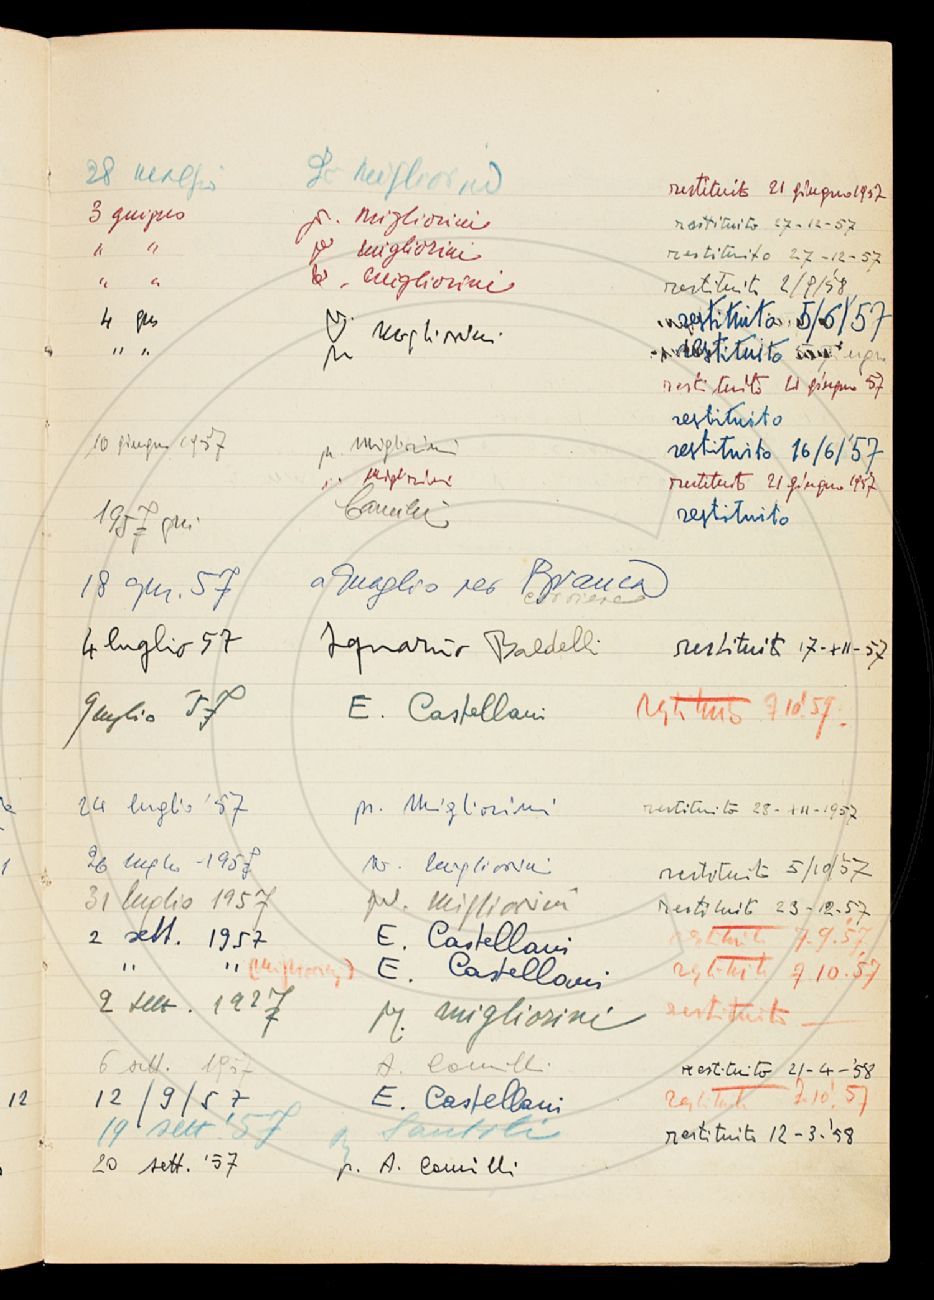 28 maggio Pr Migliorini restituito 21 giugno 1957
3 giugno pr. Migliorini restituito 27-12-57
" " pr Migliorini restituito 27-12-57
" " pr. Migliorini restituito 2/9/58
4 giu Migliorini restituito 5/6/57
" " pr restituito
restituito 21 giugno 57
restituito
10 giugno 1957 pr. Migliorini restituito 16/6/57
" Migliorini restituito 21 giugno 1957
1957 giu. Camilli restituito
18 giu. 57 a Quaglio per Branca
4 luglio 57 Ignazio Baldelli restituito 17-XII-57
9 luglio 57 E. Castellani restituito 7 10. 59.
24 luglio '57 pr. Migliorini restituito 28-XII-1957
26 luglio 1957 pr. Migliorini restituito 5/10/57
31 luglio 1957 pr. Migliorini restituito 23-12-57
2 sett. 1957 E. Castellani restituito 7.9.57
" " (Migliorini) E. Castellani restituito 7.10.57
2 sett. 1957 pr. Migliorini restituito —
6 sett. 1957 A. Camilli restituito 21-4-'58
12 12/9/57 E. Castellani restituito 7.10.57
19 sett. '57 pr Santoli restituito 12-3-'58
20 sett. '57 pr. A. Camilli